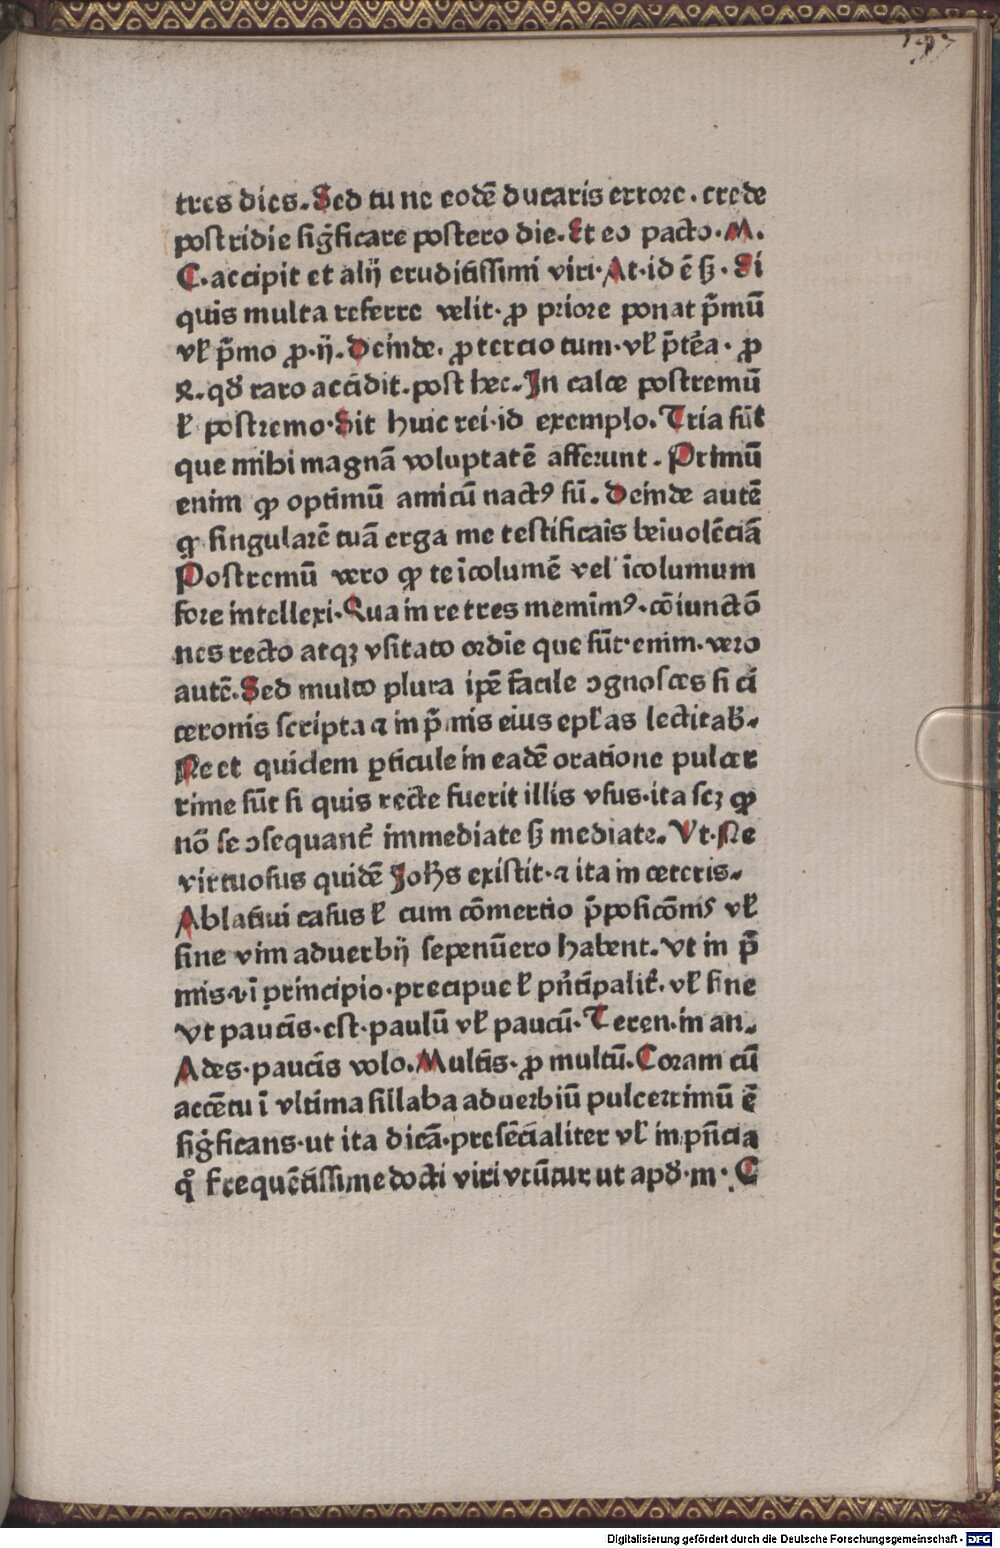 tres dies. Sed tu ne eodē ducaris errore. crede
postridie siḡficare postero die. Et eo pacto. M.
C. accipit et alij eruditissimi viri. At. id ē ß. Si
quis multa referre velit. ꝓ priore ponat p̄mū
vł p̄mo ꝓ. ij. Deinde. ꝓ tercio tum. vł p̄tēa. ꝓ
qđ raro accidit. post hec. In calce postremū
ł postremo. Sit huic rei. id exemplo. Tria sūt
que mihi magnā voluptatē afferunt. Primū
enim ꝙ optimū amicū nactꝰ sū. Deinde autē
ꝙ singularē tuā erga me testificaīs beīuolēciā
Postremū vero ꝙ te īcolumē vel īcolumum
fore intellexi. Qua in re tres memīmꝰ. cōiunctō
nes recto atqꝫ vsitato ordīe que sūt. enim. vero
autē. Sed multo plura ipē facile ↄgnosces si ci
ceronis scripta ⁊ in p̄mis eius epłas lectitab̄.
Ne et quidem ꝑticule in eadē oratione pulcer
rime sūt si quis recte fuerit illis vsus. ita scꝫ ꝙ
nō se ↄsequant̄ immediate ß mediate. Vt. Ne
virtuosus quidē Joħs existit. ⁊ ita in ceteris.
Ablatiui casus ł cum cōmertio p̄posicōnis vł
sine vim aduerbij sepenūero habent. Vt in p̄
mis. vī principio. precipue ł pn̄cipalit̄. vł sine
vt paucis. est. paulū vł paucū. Teren. in an.
Ades. paucis volo. Multis. ꝓ multū. Coram cū
accētu ī vltima sillaba aduerbiū pulcerrimū ē
siḡficans. ut ita dicā. presēcialiter vł in pn̄cia
qͦ frequētissime docti viri vtūtur ut apđ. m. C
Digitalisierung gefördert durch die Deutsche Forschungsgemeinschaft - DFG